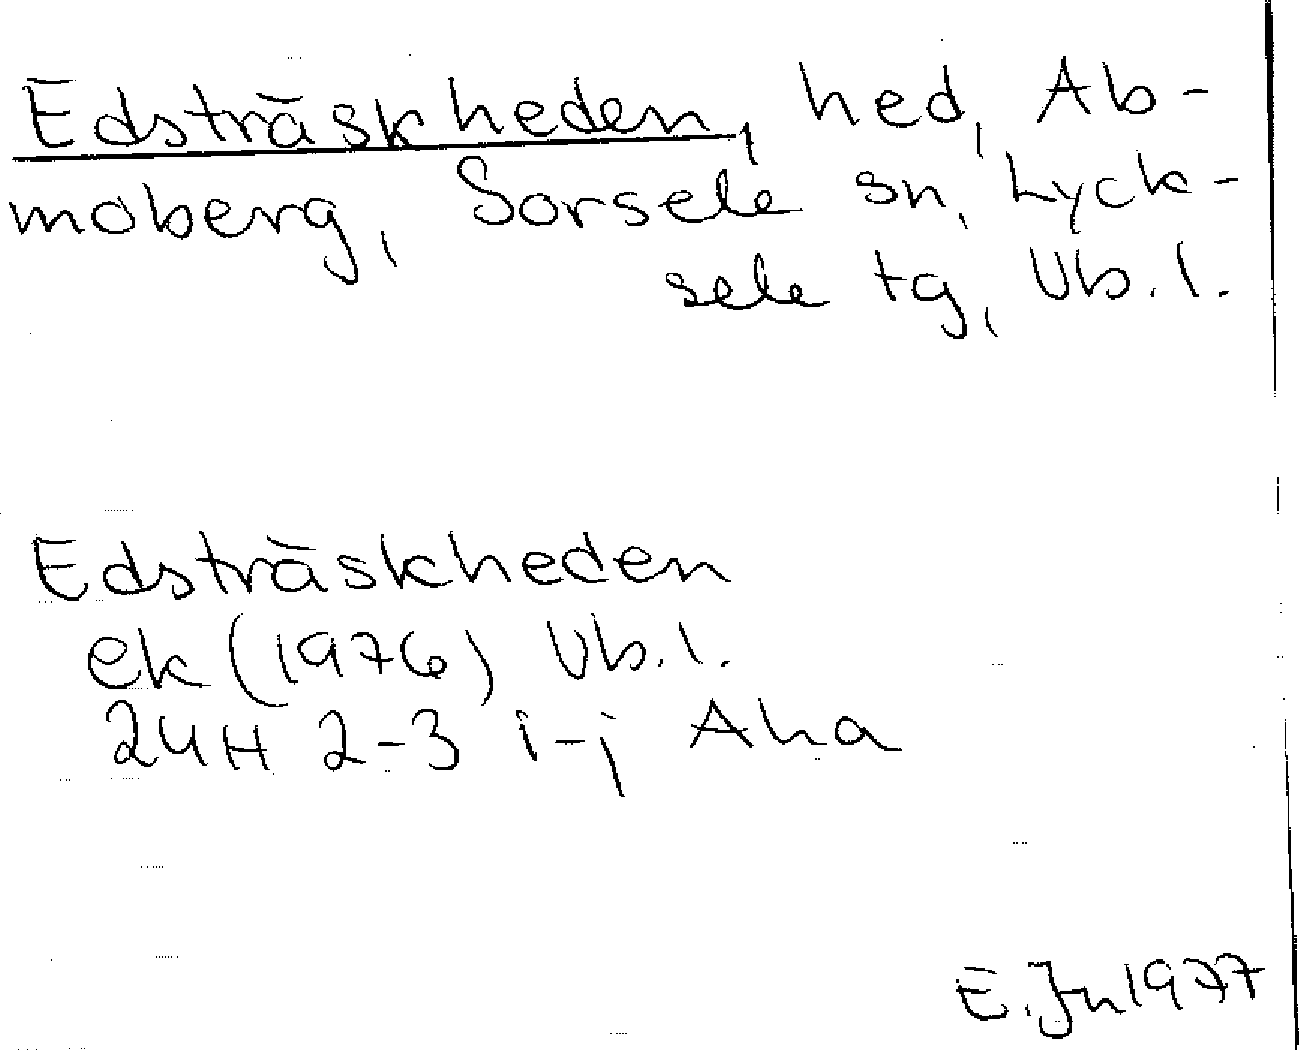 Edsträskheden, hed, Ab-
moberg, Sorsele sn, Lyck-
sele tg, Vb.l.
Edsträskheden
ek (1976) Vb.l.
24H 2-3 i-j Aha
E.Jn 1977